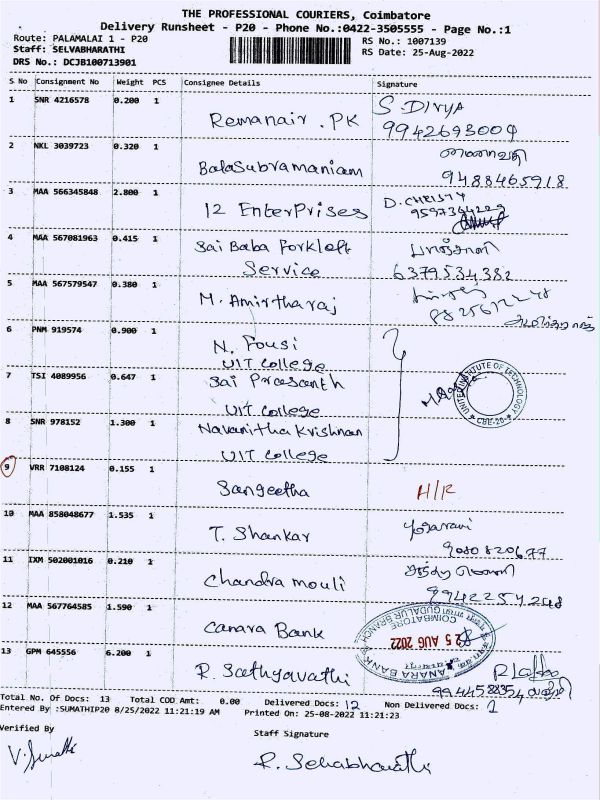 THE PROFESSIONAL COURIERS, Coimbatore
Delivery Runsheet - P20 - Phone No.:0422-3505555 - Page No.:1
Route: PALAMALAI 1 - P20 RS No.: 1007139
Staff: SELVABHARATHI RS Date: 25-Aug-2022
DRS No.: DCJB100713901
S No Consignment No Weight PCS Consignee Details Signature
1 SNR 4216578 0.200 1 Remanair . PK S. DIVYA
9942693009
2 NKL 3039723 0.320 1 Balasubramaniam
9488465918
3 MAA 566345848 2.800 1 12 EnterPrises D. CHRISTY
9597364229
4 MAA 567081963 0.415 1 Sai Baba Forkleft
Service 6379534382
5 MAA 567579547 0.380 1 M. Amirtharaj
6 PNM 919574 0.900 1 N. Fousi
UIT College
7 TSI 4089956 0.647 1 Sai Prasanth
UIT College
UNITED INSTITUTE OF TECHNOLOGY
CBE-20
8 SNR 978152 1.300 1 Navanitha Krishnan
UIT College
9 VRR 7108124 0.155 1 Sangeetha H/R
10 MAA 858048677 1.535 1 T. Shankar
9080820677
11 IXM 502001016 0.210 1 Chandra mouli
9942254248
12 MAA 567764585 1.590 1 Canara Bank
COIMBATORE GUDALUR BRANCH
25 AUG 2022
CANARA BANK
13 GPM 645556 6.200 1 R. Sathyavathi
9944588354
Total No. Of Docs: 13 Total COD Amt: 0.00 Delivered Docs: 12 Non Delivered Docs: 1
Entered By :SUMATHIP20 8/25/2022 11:21:19 AM Printed On: 25-08-2022 11:21:23
Verified By Staff Signature
V. Sumathi R. Selvabharathi